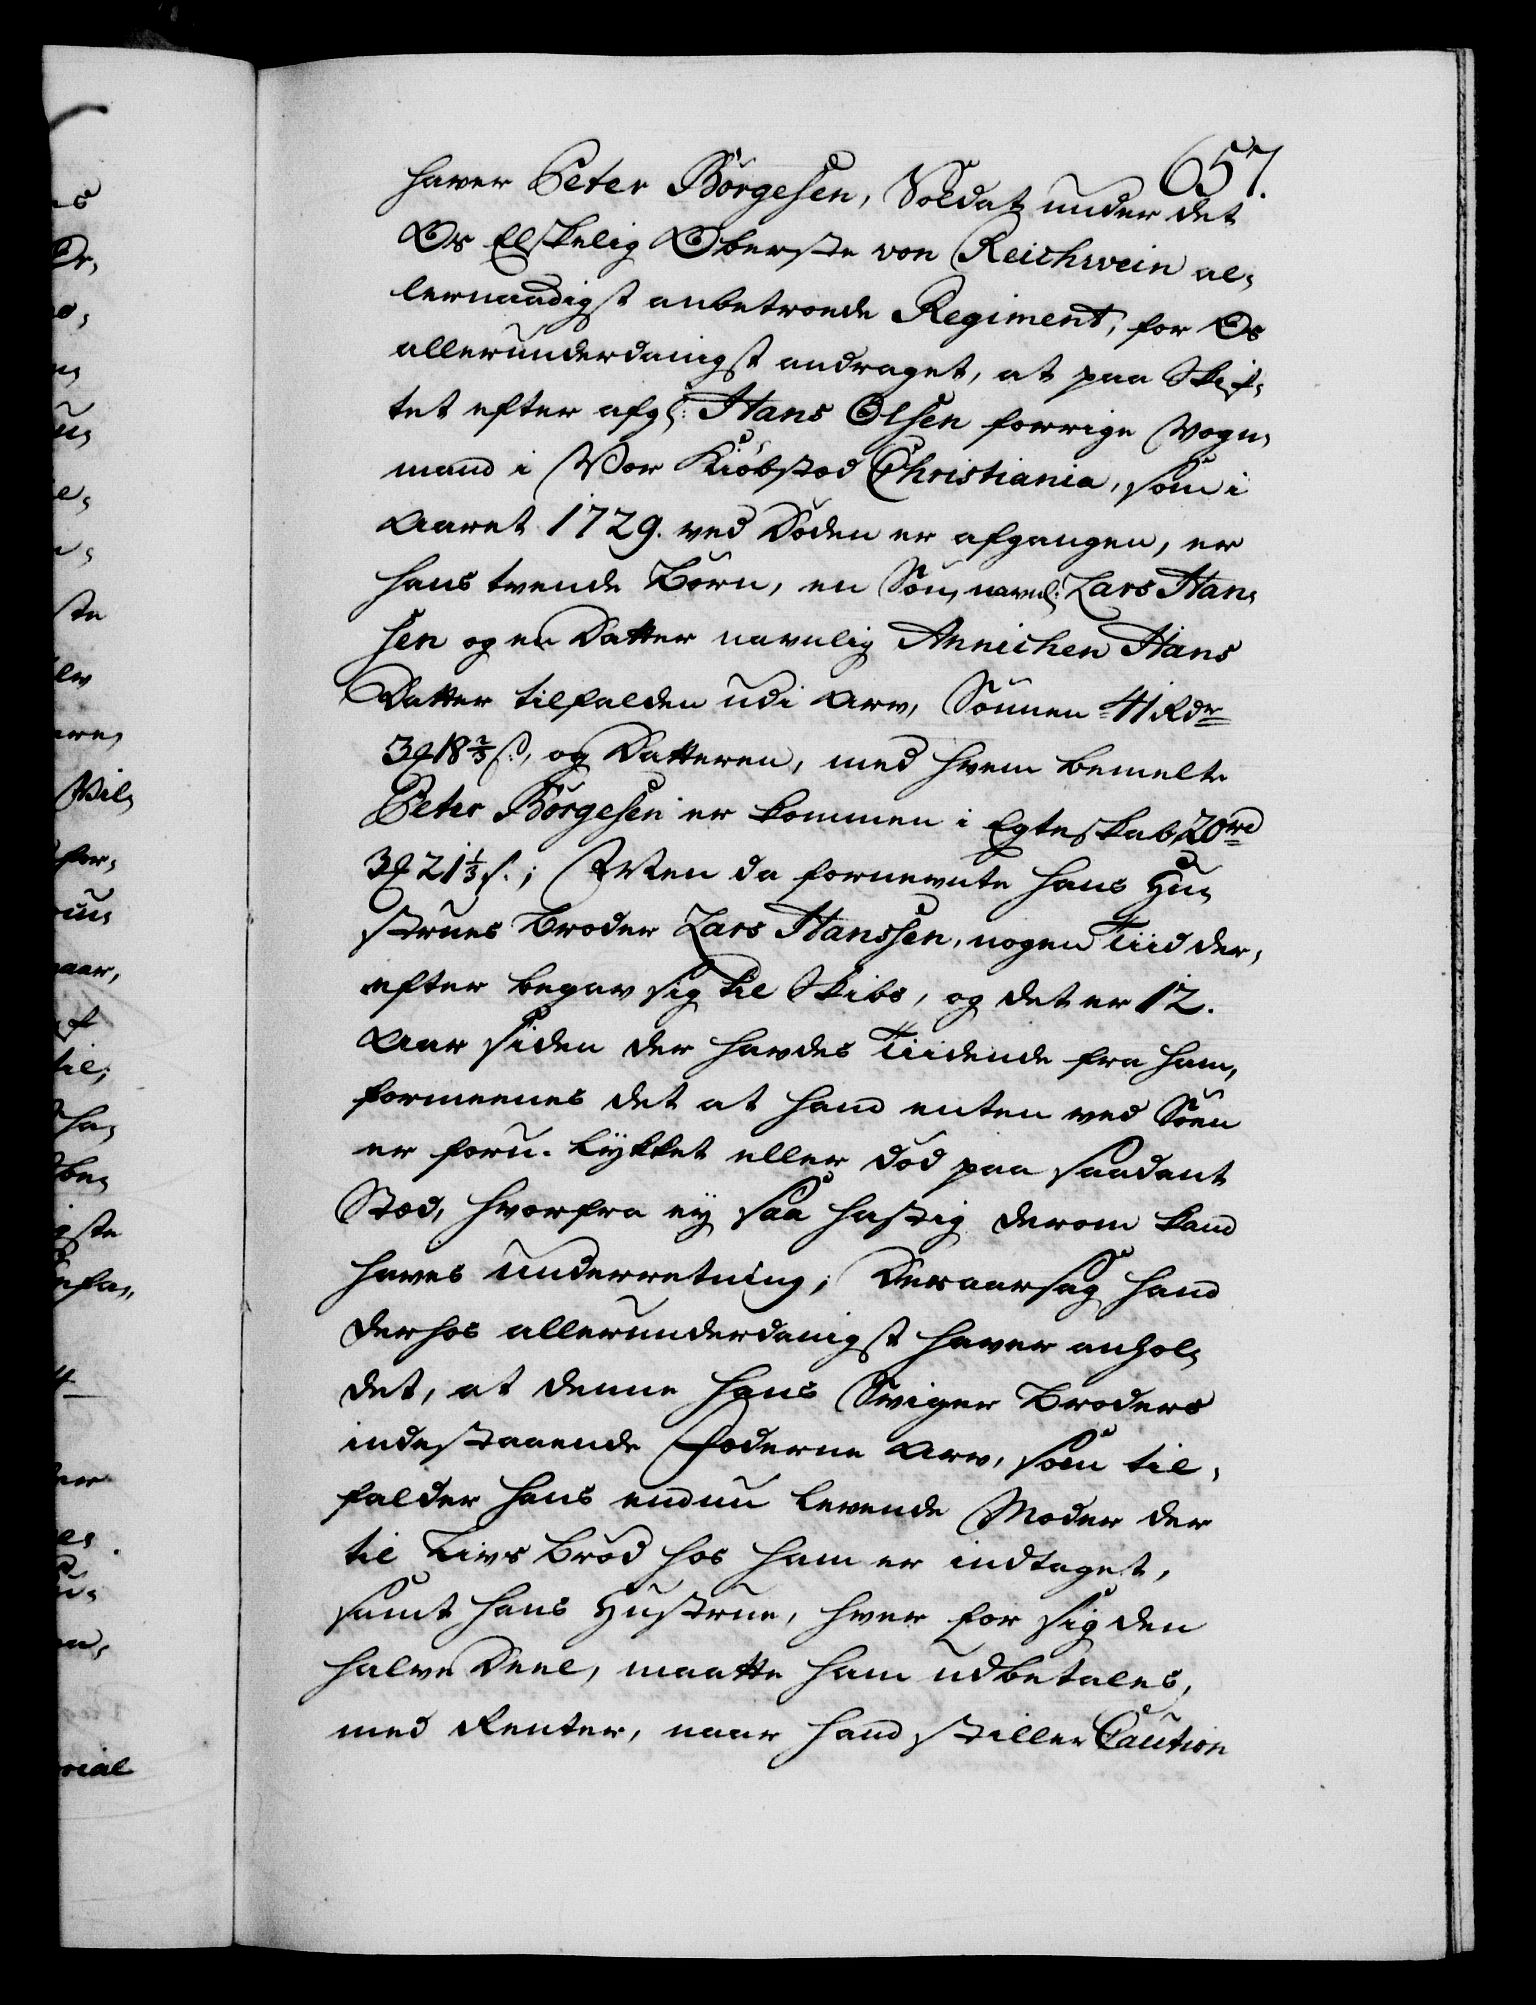 657.
haver Peter Börgesen, Soldat under det
Os Elskelig Oberste von Reichwein al-
lernaadigst anbetroede Regiment, for Os
allerunderdanigst andraget, at paa Skif-
tet efter afg: Hans Olsen forrige Vogn-
mand i Vor Kiöbstæd Christiania, som i
Aaret 1729. ved Döden er afgangen, er
hans tvende Börn, en Sön, navnl: Lars Han-
sen og en Datter navnlig Annichen Hans
Datter tilfalden udi Arv, Sönnen 41 Rdr
3 18 2/3 s, og Datteren, med hvem bemelte
Peter Börgesen er kommen i Egteskab 20 rd
3 21 1/3 s.; Men da fornevnte hans Hu-
strues Broder Lars Hanssen, nogen Tiid der-
efter begav sig til Skibs, og det er 12.
Aar siden der havdes Tiidende fra ham,
formeenes det at hand enten ved Söen
er foru-lykket eller död paa saadant
Stæd, hvorfra ey saa hastig derom kand
haves underretning; Deraarsag hand
derhos allerunderdanigst haver anhol-
det, at denne hans Sviger Broders
indestaaende Fæderne Arv, som til-
falder hans endnu levende Moder der
til Livs Bröd hos ham er indtaget,
samt hans Hustrue, hver for sig den
halve Deel, maatte ham udbetales,
med Renter, naar hand stiller Caution